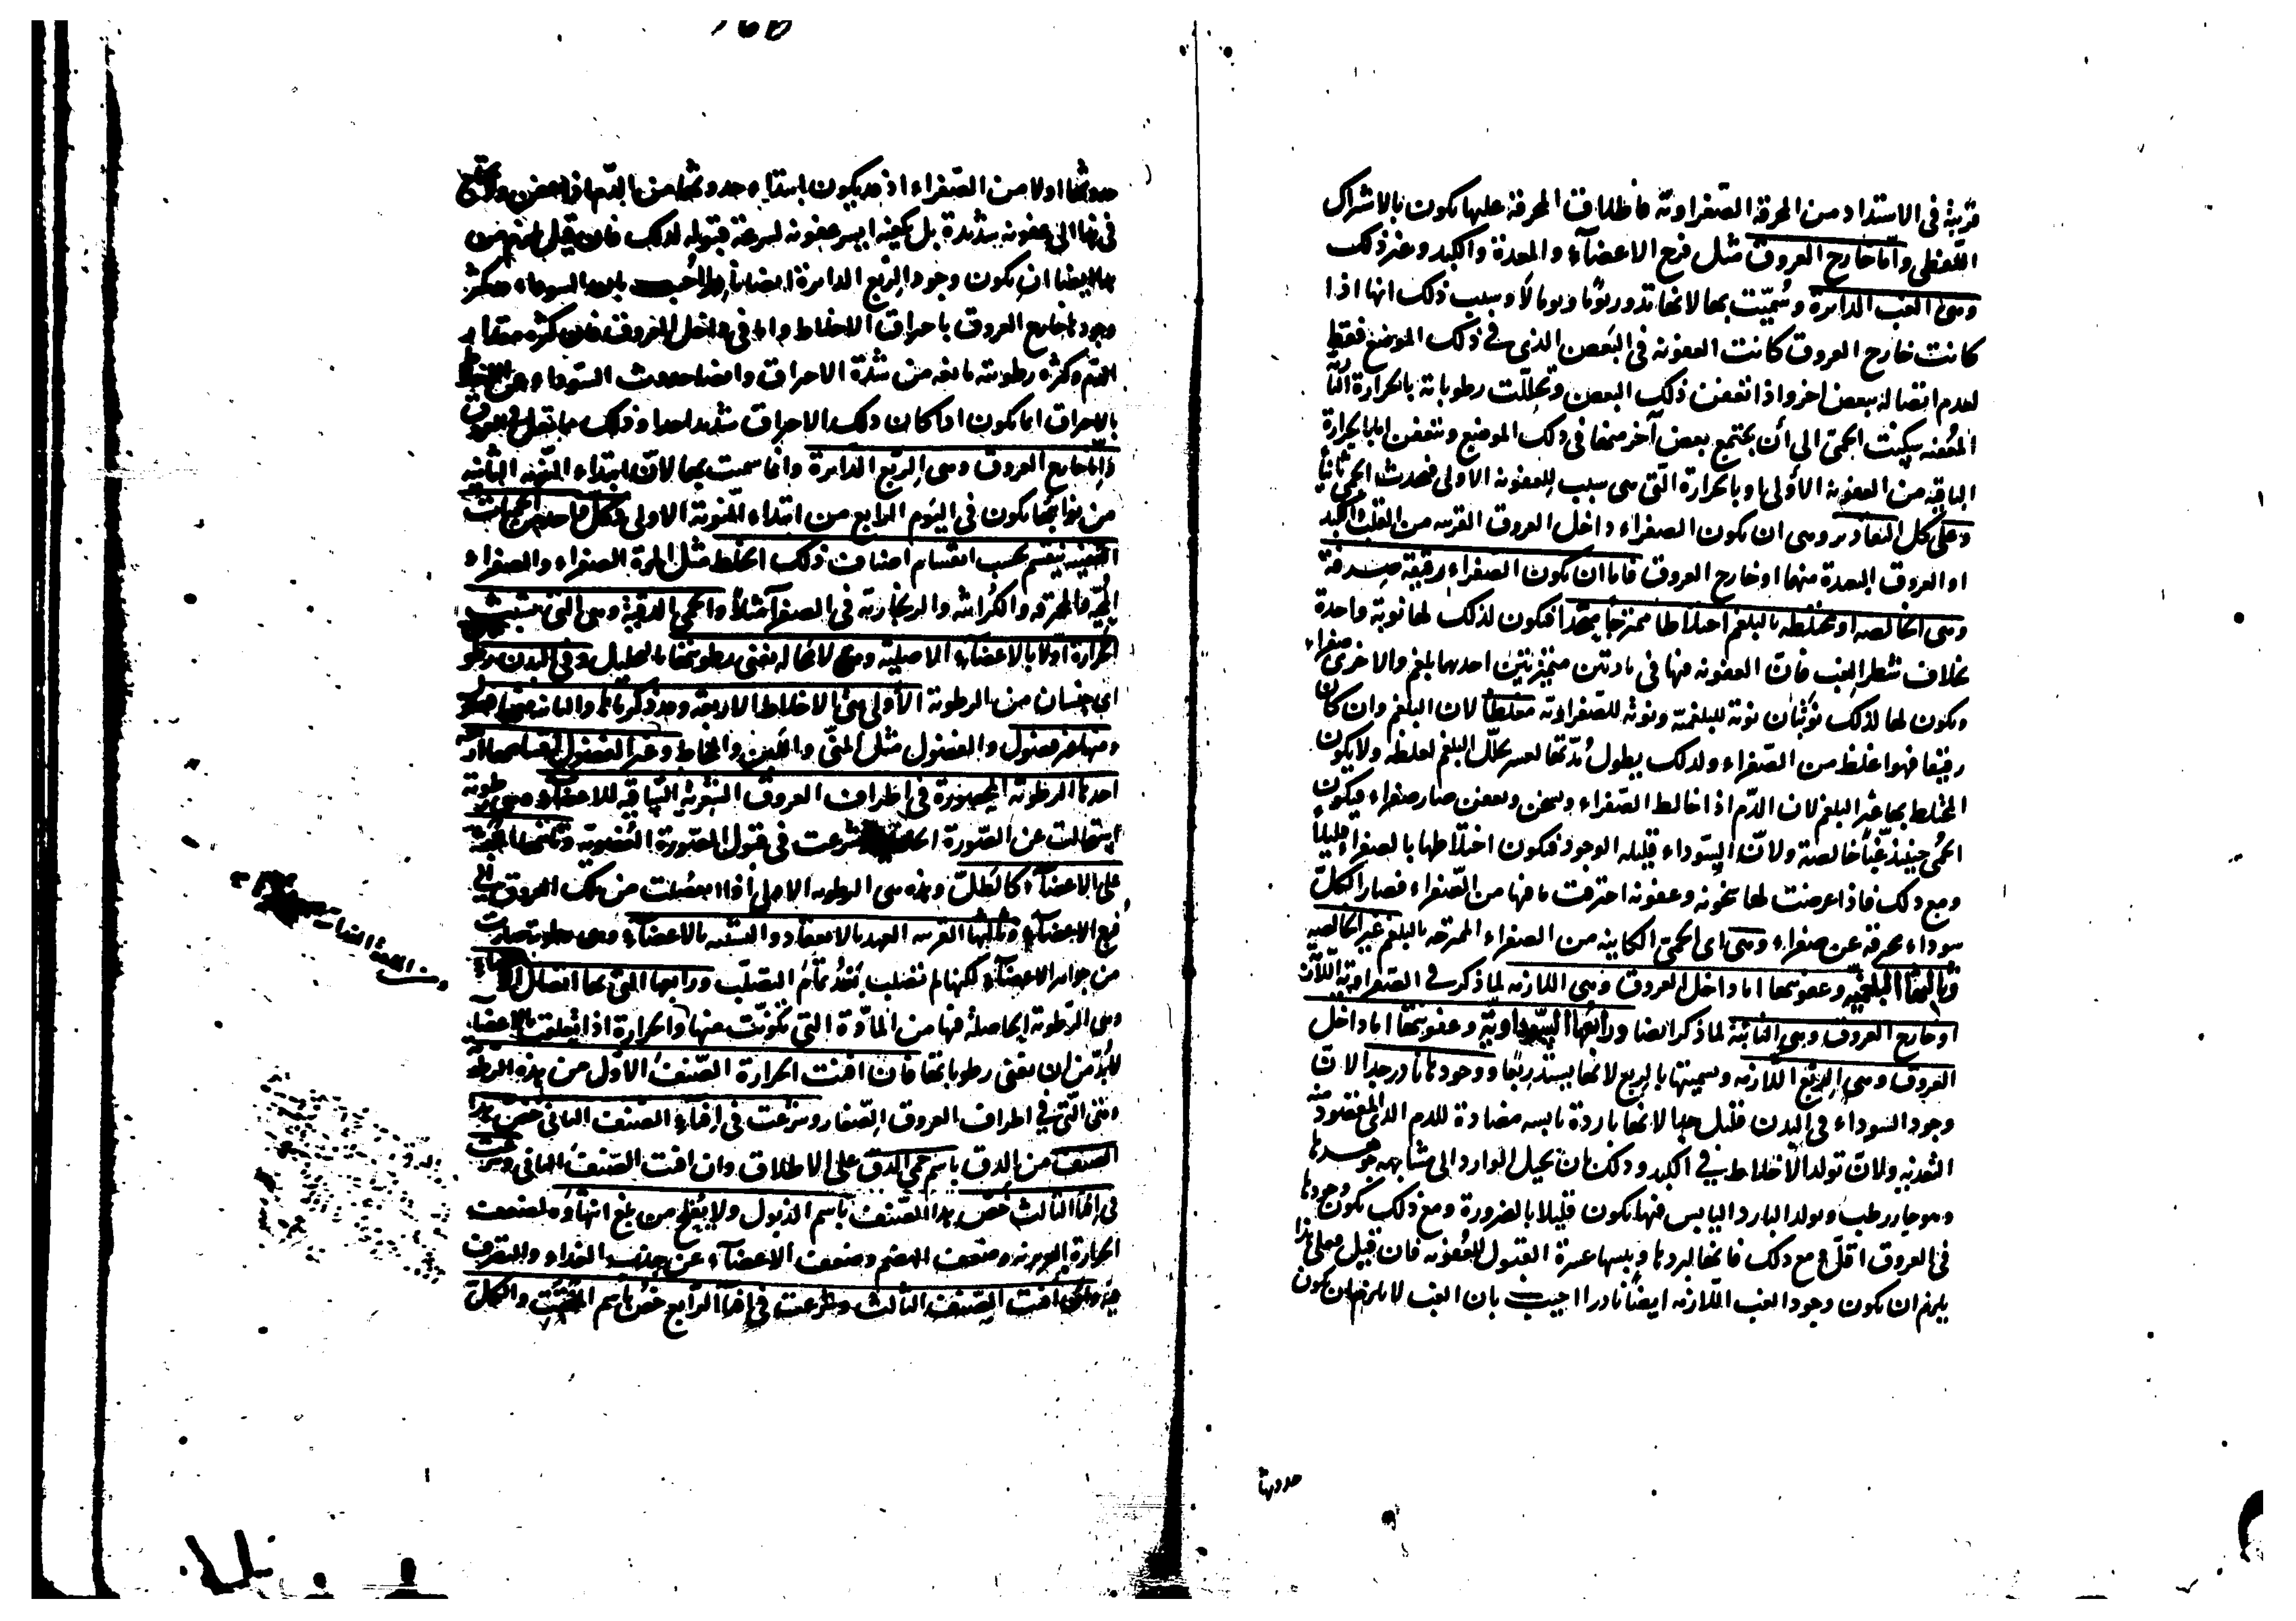 قريبة في الاشتداد من المحرقة الصفراوية فاطلاق المحرقة عليها يكون بالاشتراك
اللفظي واما خارج العروق مثل فرج الاعضآء والمعدة والكبد وغير ذلك
وهى الغب الدائرة وسُمّيت بها لانها تدور يومًا ويوما لا وسبب ذلك انها اذا
كانت خارج العروق كانت العفونه في البعض الذى في ذلك الموضع فقط
لعدم اتصاله ببعض اخر واذا تعفن ذلك البعض وتحلّلت رطوباته بالحرارة النارية
المعُفنه سكنت الحمّى الى أن يجتمع بعض آخر منها فى ذلك الموضع ويتعفن اما بالحرارة
الباقيه من العفونه الأولى او بالحرارة الّتى هى سبب للعفونه الاولى فحدث الحمى ثانيًا
وعلى كل التقادير وهى ان يكون الصفراء داخل العروق القريبه من القلب والكبد
او العروق البعيدة منهما او خارج العروق فاما ان يكون الصفراء رقيقه صرفة
وهى الخالصه او مختلطه بالبلغم اختلاطا ممتزجًا متحدا فيكون لذلك لها نوبة واحدة
بخلاف شطر الغب فان العفونه فيها في مادتين متميزتين احدهما بلغم والاخرى صفراء
ويكون لها لذلك نوبتان نوبة للبلغمية ونوبة للصفراوية مغلظًا لان البلغم وان كان
رقيقا فهو اغلظ من الصفراء ولذلك يطول مُدّتها لعسر تحلّل البلغم لغلظه ولا يكون
المختلط بها غير البلغم لان الدّم اذا خالط الصفراء وسخن وتعفن صار صفراء فيكون
الحمى حينئذ غبًّا خالصة ولانّ السوداء قليله الوجود فيكون اختلاطها بالصفراء قليلًا
ومع ذلك فاذا عرضت لها سخونه وعفونه احترقت ما فيها من الصّفراء فصار الكلّ
سوداء محرقة عن صفراء وهى اى الحمّى الكاينه من الصفراء الممتزجه بالبلغم غير الخالصه
وثالثها البلغميّه وعفونتها اما داخل العروق وهى اللازمه لما ذكر في الصفراوية الآن
او خارج العروق وهى النائبة لما ذكر ايضا ورابعُها السّوداويّة وعفونتها اما داخل
العروق وهى الربع اللازمه وتسميتها بالربع لانها يشتد رِبعًا ووجودها نادر جدا لانّ
وجود السوداء في البدن قليل جدا لانها باردة يابسه مضادة للدم الذى المقصود منه
التغذيه ولانّ تولد الأخلاط في الكبد وذلك بان يحيل الوارد الى مشابهه جوهرها
وهو حار رطب وتولد البارد اليابس فيها يكون قليلا بالضرورة ومع ذلك يكون وجودها
فى العروق اقلّ ومع ذلك فانها لبردها ويبسها عسرة القبول للعفونه فان قيل فعلى هذا
يلزم ان يكون وجود الغب اللّازمه ايضًا نادرا اجيب بان الغب لا يلزم ان يكون
حدوثها
حدوثها اولا من الصّفراء اذ قد يكون ابتداء حدوثها من الدّم اذا تعفن ولا يحتاج
فيها الى عفونه شديدة بل يكفيه ايسر عفونه لسرعة قبوله لذلك فان قيل
ايضا ان يكون وجود الربع الدائرة ايضا نادرا اجيب بان السوداء يكثر
وجودها خارج العروق باحراق الاخلاط واما في داخل العروق فان كثره مقدار
الدّم وكثره رطوبته مانعه من شدّة الاحراق وايضا حدوث السّوداء
بالاحراق انما يكون اذا كان ذلك الاحراق شديدا جدا وذلك مما يقل في العروق
واما خارج العروق وهى الرّبع الدايرة وانما سميت بها لانّ ابتداء النّوبه الثانيه
من نوائبها يكون فى اليوم الرابع من ابتداء النّوبة الاولى وكل واحد من الحميات
العفينه ينقسم بحسب انقسام اصناف ذلك الخلط مثل المرة الصفراء والصفراء
المُحيّه والمحرقه والكُراثيه والزنجاريه فى الصفرآ مثلًا والحمى الدقيّة وهى التى يتشبث
الحرارة اولًا بالاعضآء الاصلية لانها يفنى رطوبتها بالتحليل وفى البدن رطو
اى جنسان من الرطوبة الأولى هى الاخلاط الاربعة وقد ذكرناها والثانيه
ومنها غير فضول والفضول مثل المنّى واللبن والمخاط وغير الفضول
احدها الرطوبة المحصورة فى اطراف العروق الشعريّة السّاقيه للاعضآء وهى رطوبة
استحالت عن الصّورة شرعت فى قبول الصّورة العُضويّة
على الاعضآء كالطّلّ وهذه هى الرطوبه الاولى اذا انفصلت من تلك العروق الى
فرج الاعضآء وثالثها القريبه العهد بالانعقاد والتشبه بالاعضآء وهى رطوبة صارت
من جواهر الاعضآء لكنها لم تتصلب بَعْدُ تمام التصلّب ورابعها التى بها اتصال الاعضآء
وهى الرّطوبة الحاصلة فيها من المادّة التى تكوّنت عنها والحرارة اذا تعلقت بالاعضآء
لابُدّ من ان يفنى رطوباتها فان افنت الحرارة الصّنف الاوّل من هذه الرطوبة
وهى الّتى فى اطراف العروق الصّغار وشرعت فى افناء الصنف الثانى خصّ هذا
الصنف من الدق باسم حمى الدق على الاطلاق وان افنت الصّنف الثانى وشرعت
فى افنا الثالث خصّ هذا الصّنف باسم الذبول ولا يُفلح من بلغ انتهاؤه لضعف
الحرارة الغريزيه وضعف الهضم وضعف الاعضآء عن جذب الغذاء والتصرف
فيه وان افنت الصّنف الثالث وشرعت فى افنآ الرّابع خصّ باسم المُفَتّت والكلّ